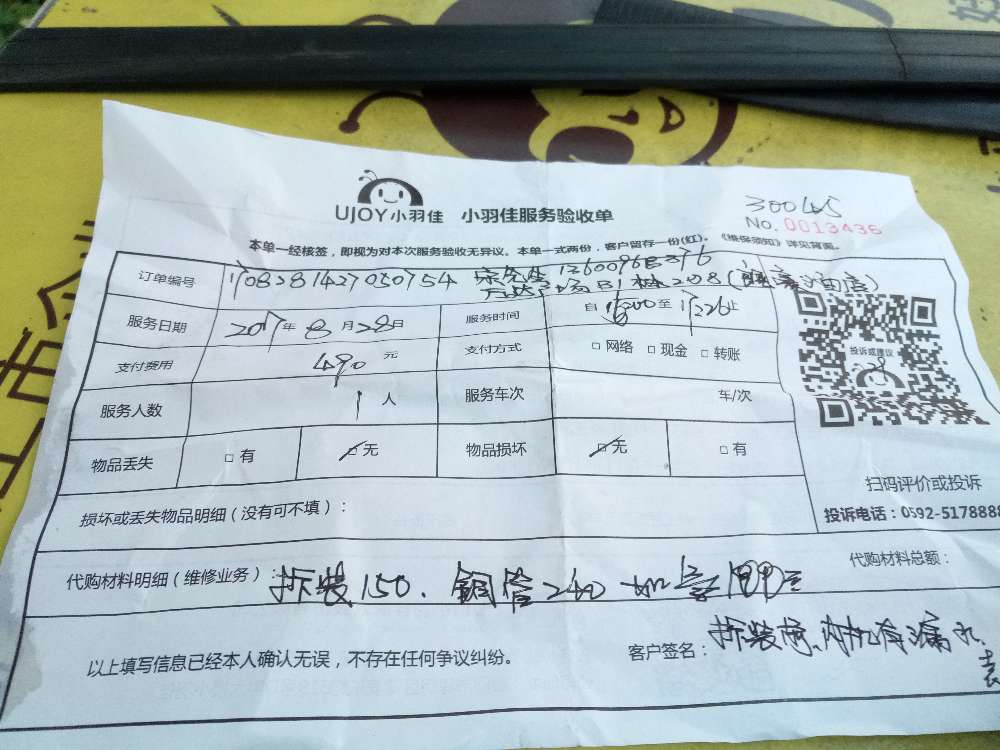 300465
UJOY小羽佳 小羽佳服务验收单
No. 0013435
本单一经核签,即视为对本次服务验收无异议。本单一式两份,客户留存一份(红)。《维保须知》详见背面。
订单编号 1708281427050754
B1
208
服务日期 2017年8月28日 服务时间 自1600至1726止
支付费用 490元 支付方式 □网络 □现金 □转账
投诉或建议
服务人数 1人 服务车次 车/次
物品丢失 □有 □无 物品损坏 □无 □有
扫码评价或投诉
损坏或丢失物品明细(没有可不填):
投诉电话:0592-5178888
代购材料明细(维修业务): 拆装150. 铜管240 加 100元
代购材料总额:
以上填写信息已经本人确认无误,不存在任何争议纠纷。
客户签名: 拆装 内机有漏水